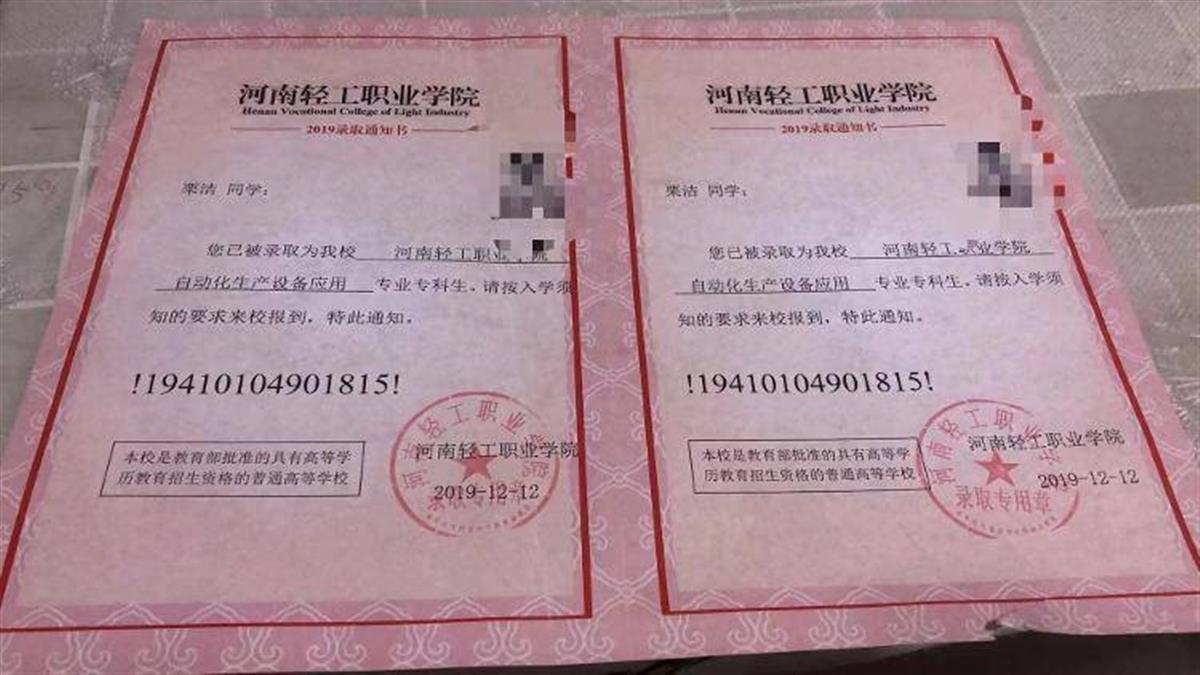 河南轻工职业学院
Henan Vocational College of Light Industry
2019录取通知书
栗洁 同学:
您已被录取为我校 河南轻工职业学院
自动化生产设备应用 专业专科生。请按入学须
知的要求来校报到,特此通知。
!19410104901815!
本校是教育部批准的具有高等学
历教育招生资格的普通高等学校
河南轻工职业学院
2019-12-12
录取专用章
河南轻工职业学院
Henan Vocational College of Light Industry
2019录取通知书
栗洁 同学:
您已被录取为我校 河南轻工职业学院
自动化生产设备应用 专业专科生。请按入学须
知的要求来校报到,特此通知。
!19410104901815!
本校是教育部批准的具有高等学
历教育招生资格的普通高等学校
河南轻工职业学院
2019-12-12
录取专用章